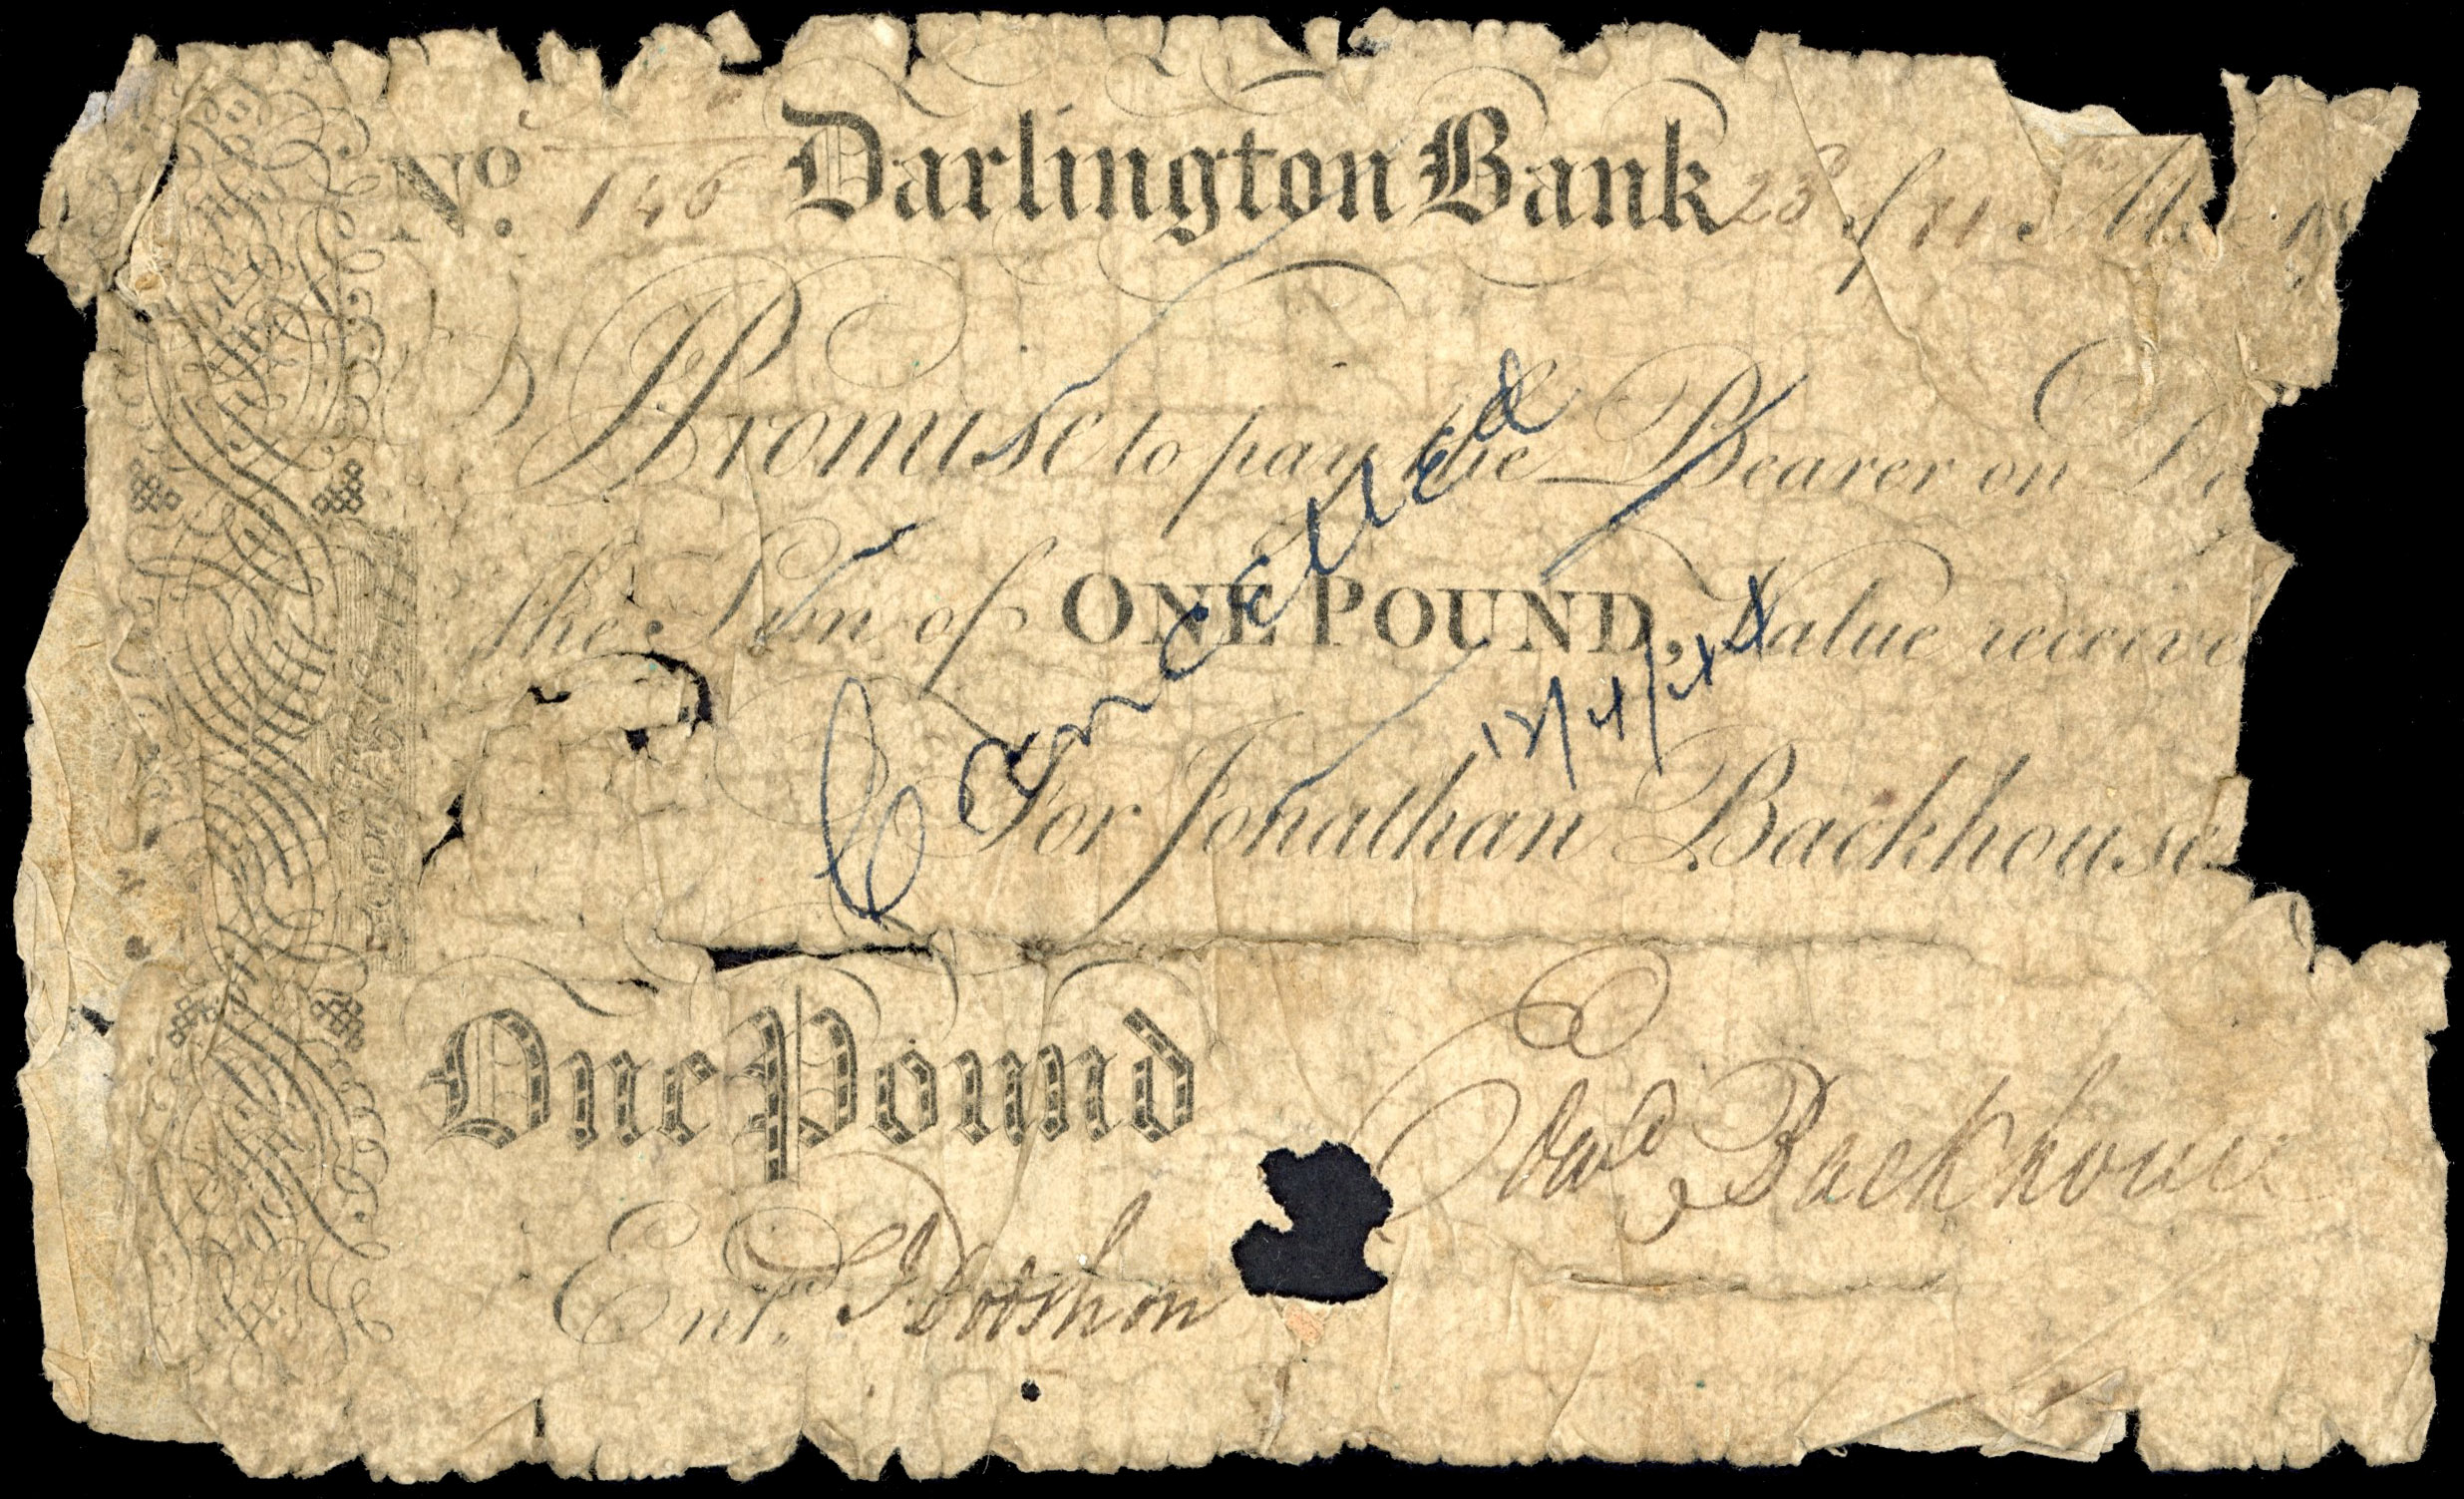 No. 146 Darlington Bank 23d
I Promise to pay the Bearer on De
the Sum of ONE POUND, Value receive
Cancelled
For Jonathan Backhouse
One Pound
Edwd Backhouse
Entd. J Dotchon